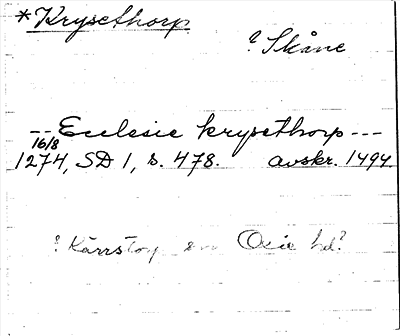 *Krysethorp
? Skåne
-- Ecclesie krysethorp ---
16/8
1274, SD 1, s. 478. avskr. 1494
? Kärrstorp Oxie hd?